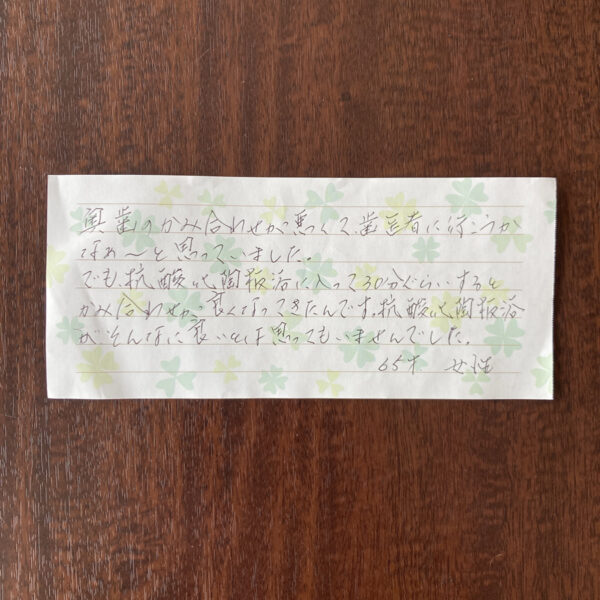 奥歯のかみ合わせが悪くて、歯医者に行こうか
なぁ〜と思っていました。
でも、抗酸化陶板浴に入って30分ぐらいすると
かみ合わせが良くなってきたんです。抗酸化陶板浴
がそんなに良いとは思ってもいませんでした。
65才 女性